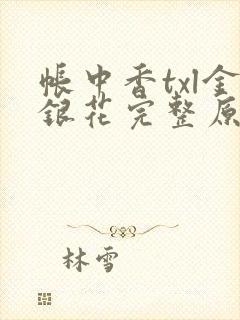 帐中香txl金
银花完整原
林雪